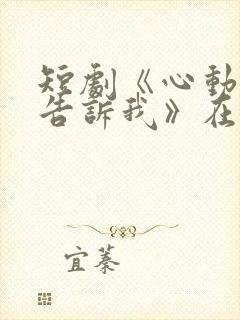 短劇《心動
告訴我》在
宜蓁